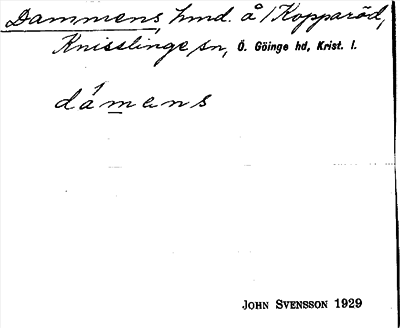 Dammens, hmd. å 1 Kopparöd,
Knisslinge sn, Ö. Göinge hd, Krist. l.
dámens
JOHN SVENSSON 1929